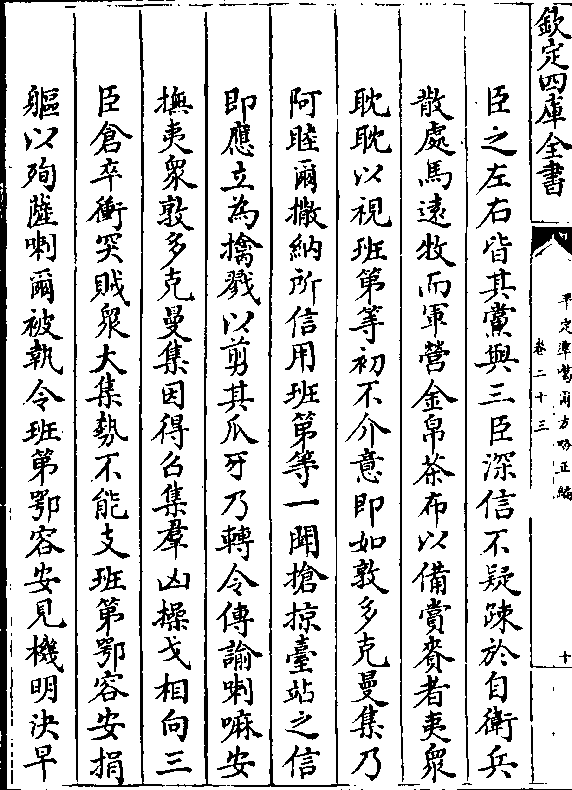 欽定四庫全書
平定準噶爾方略正編
卷二十三
十
臣之左右皆其黨與三臣深信不疑踈於自衛兵
散處馬遠牧而軍營金帛茶布以備賞賚者夷衆
眈眈以視班第等初不介意即如敦多克曼集乃
阿睦爾撒納所信用班第等一聞搶掠臺站之信
即應立為擒戮以剪其爪牙乃轉令傳諭喇嘛安
撫夷衆敦多克曼集因得召集羣凶操戈相向三
臣倉卒衝突賊衆大集勢不能支班第鄂容安捐
軀以殉薩喇爾被執令班第鄂容安見機明決早